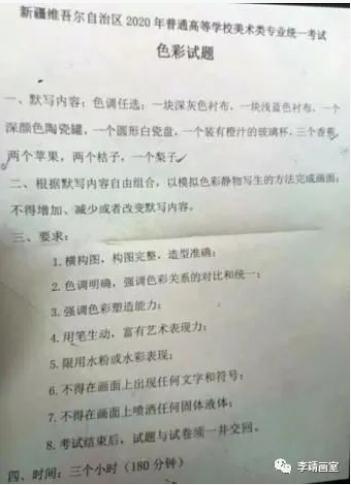 新疆维吾尔自治区2020年普通高等学校美术类专业统一考试
色彩试题
一、默写内容：色调任选；一块深灰色衬布、一块浅蓝色衬布、一个
深颜色陶瓷罐，一个圆形白瓷盘，一个装有橙汁的玻璃杯，三个香蕉，
两个苹果，两个桔子，一个梨子
二、根据默写内容自由组合，以模拟色彩静物写生的方法完成画面；
不得增加、减少或者改变默写内容。
三、要求：
1.横构图，构图完整，造型准确；
2.色调明确，强调色彩关系的对比和统一；
3.强调色彩塑造能力；
4.用笔生动，富有艺术表现力；
5.限用水粉或水彩表现；
6.不得在画面上出现任何文字和符号；
7.不得在画面上喷洒任何固体液体；
8.考试结束后，试题与试卷须一并交回。
四、时间：三个小时（180分钟）
李靖画室